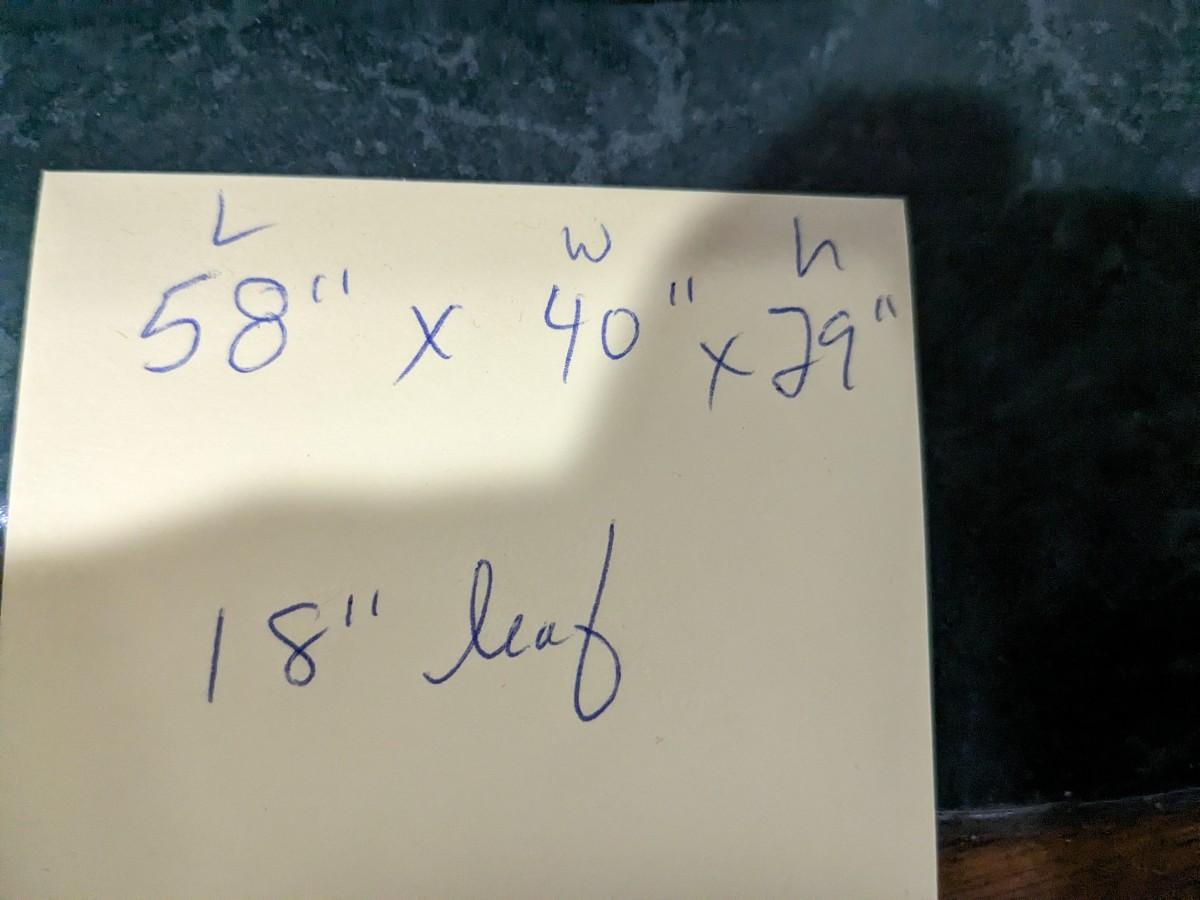 L W h
58" x 40" x 29"
18" leaf